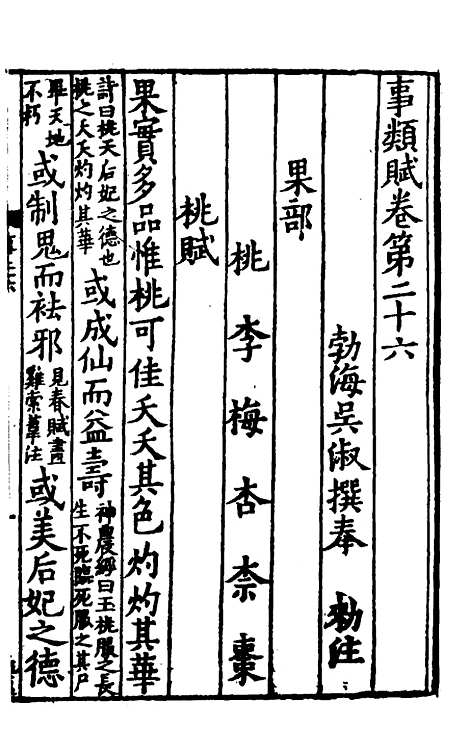 事類賦卷第二十六
勃海吳淑撰奉　勑注
果部
桃　李　梅　杏　柰　棗
桃賦
果實多品惟桃可佳夭夭其色灼灼其華
詩曰桃夭后妃之德也桃之夭夭灼灼其華或成仙而益壽神農經曰玉桃服之長生不死臨死服之其尸
畢天地不朽或制鬼而祛邪見春賦畫雞索葦注或美后妃之德